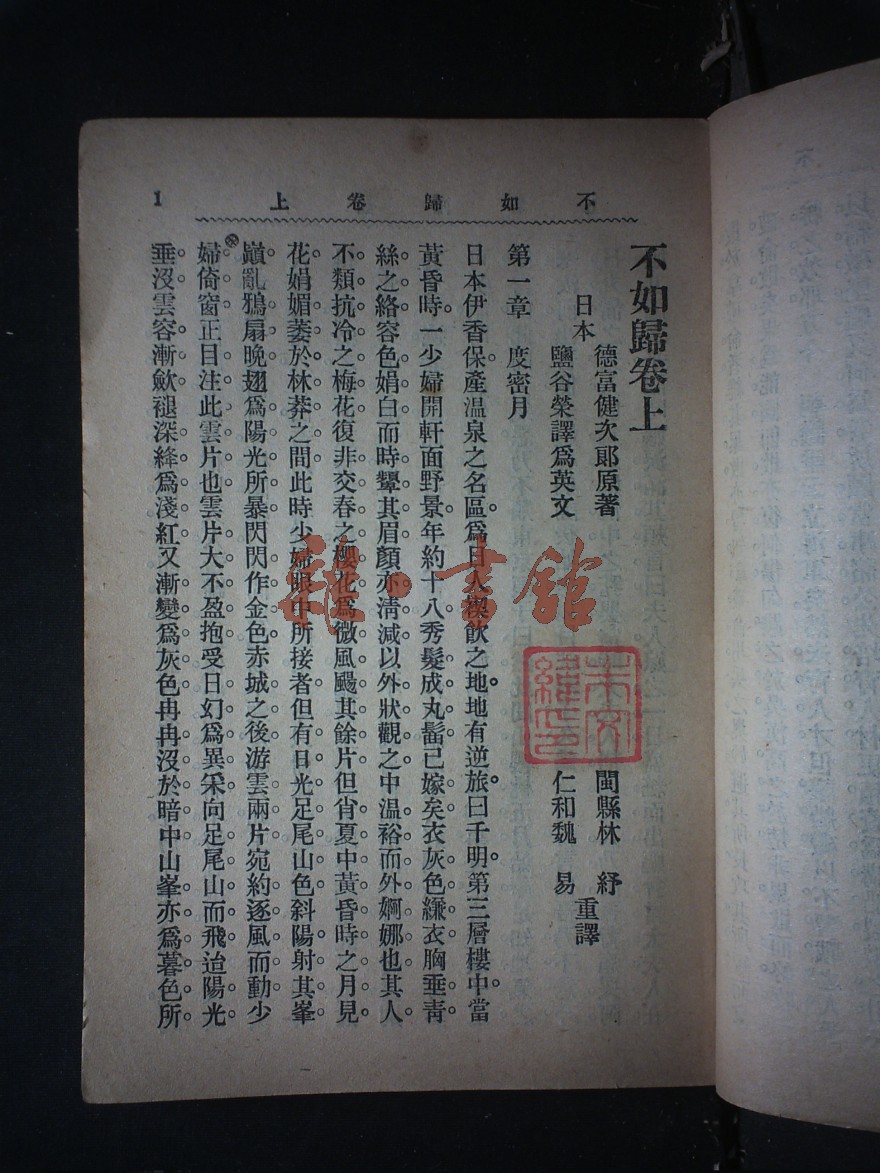 不如歸卷上
1
不如歸卷上
日本
德富健次郎原著
鹽谷榮譯爲英文
閩縣林　紓
仁和魏　易
重譯
第一章　度密月
日本伊香保產温泉之名區爲日人禊飲之地地有逆旅曰千明第三層樓中當
黃昏時一少婦開軒面野景年約十八秀髮成丸髻已嫁矣衣灰色縑衣胸垂青
絲之絡容色娟白而時顰其眉顏亦淸減以外狀觀之中溫裕而外婀娜也其人
不類抗冷之梅花復非交春之櫻花爲微風颺其餘片但肖夏中黃昏時之月見
花娟媚萎於林莽之間此時少婦眼中所接者但有日光足尾山色斜陽射其峯
巔亂鴉扇晚翅爲陽光所暴閃閃作金色赤城之後游雲兩片宛約逐風而動少
婦倚窗正目注此雲片也雲片大不盈抱受日幻爲異采向足尾山而飛迨陽光
垂沒雲容漸斂褪深絳爲淺紅又漸變爲灰色冉冉沒於暗中山峯亦爲暮色所
雜·書館